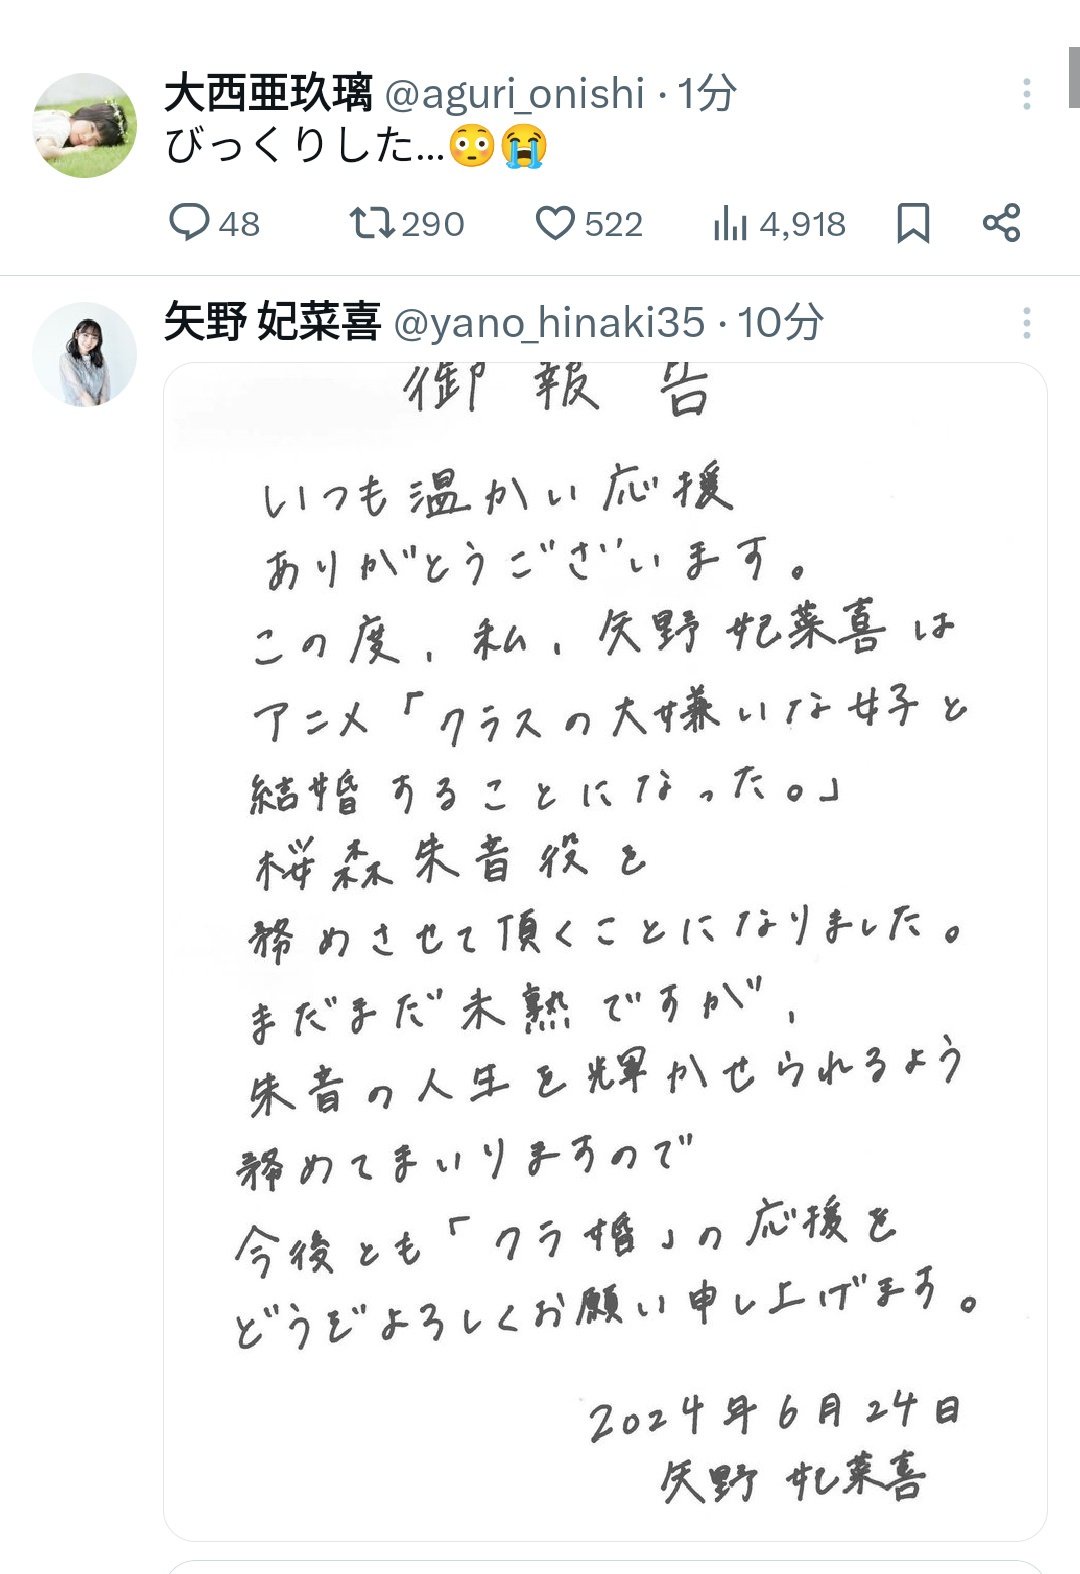 大西亜玖璃 @aguri_onishi · 1分
びっくりした...😳😭
48 290 522 4,918
矢野 妃菜喜 @yano_hinaki35 · 10分
御報告
いつも温かい応援
ありがとうございます。
この度、私、矢野妃菜喜は
アニメ「クラスの大嫌いな女子と
結婚することになった。」
桜森朱音役を
務めさせて頂くことになりました。
まだまだ未熟ですが、
朱音の人生を輝かせられるよう
務めてまいりますので
今後とも「クラ婚」の応援を
どうぞよろしくお願い申し上げます。
2024年6月24日
矢野 妃菜喜